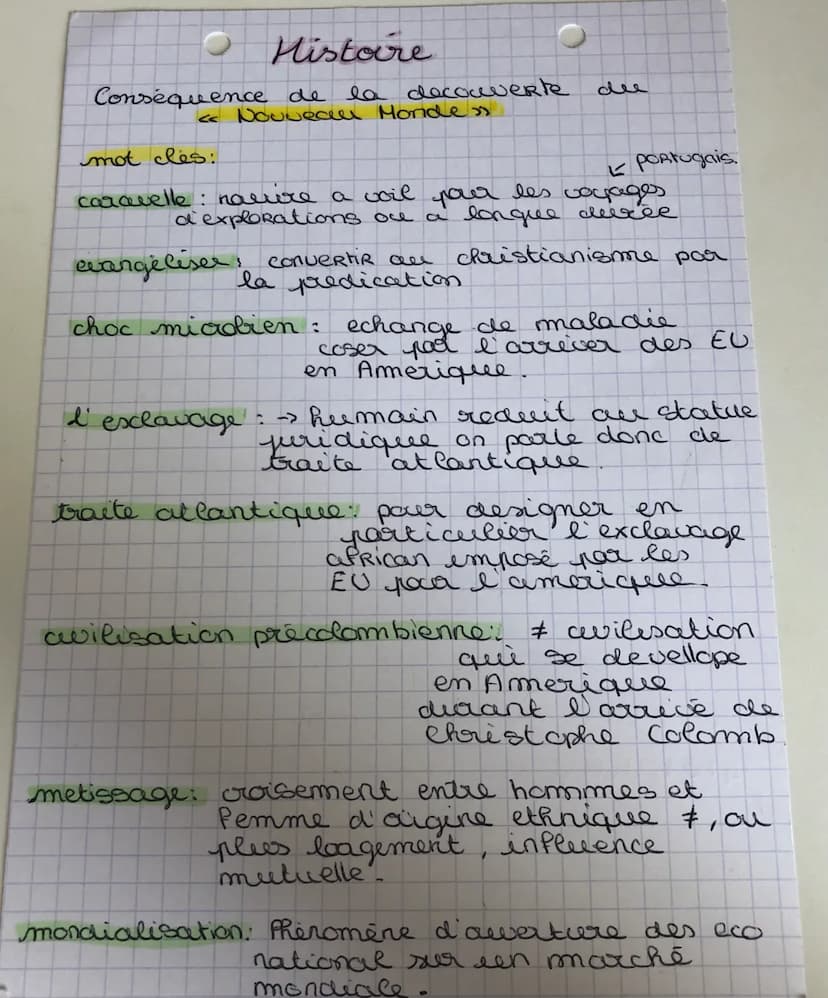 Histoire
Conséquence de la decouverte du
« Nouveau Monde »
mot clés:
↙ portugais.
caravelle : navire a voil pour les voyages
d'explorations ou a longue durée
evangéliser : convertir au christianisme par
la predication
choc microbien : echange de maladie
coser par l'arriver des EU
en Amerique.
l'esclavage : → humain reduit au statue
juridique on parle donc de
traite atlantique.
traite atlantique : pour designer en
particulier l'exclavage
african imposé par les
EU pour l'amerique.
civilisation précolombienne : ≠ civilisation
qui se devellope
en Amerique
durant l'arrivé de
Christophe Colomb.
metissage : croisement entre hommes et
femme d'origine ethnique ≠, ou
plus loagement, influence
mutuelle.
mondialisation : Phénomène d'ouverture des eco
national sur un marché
mondiale.